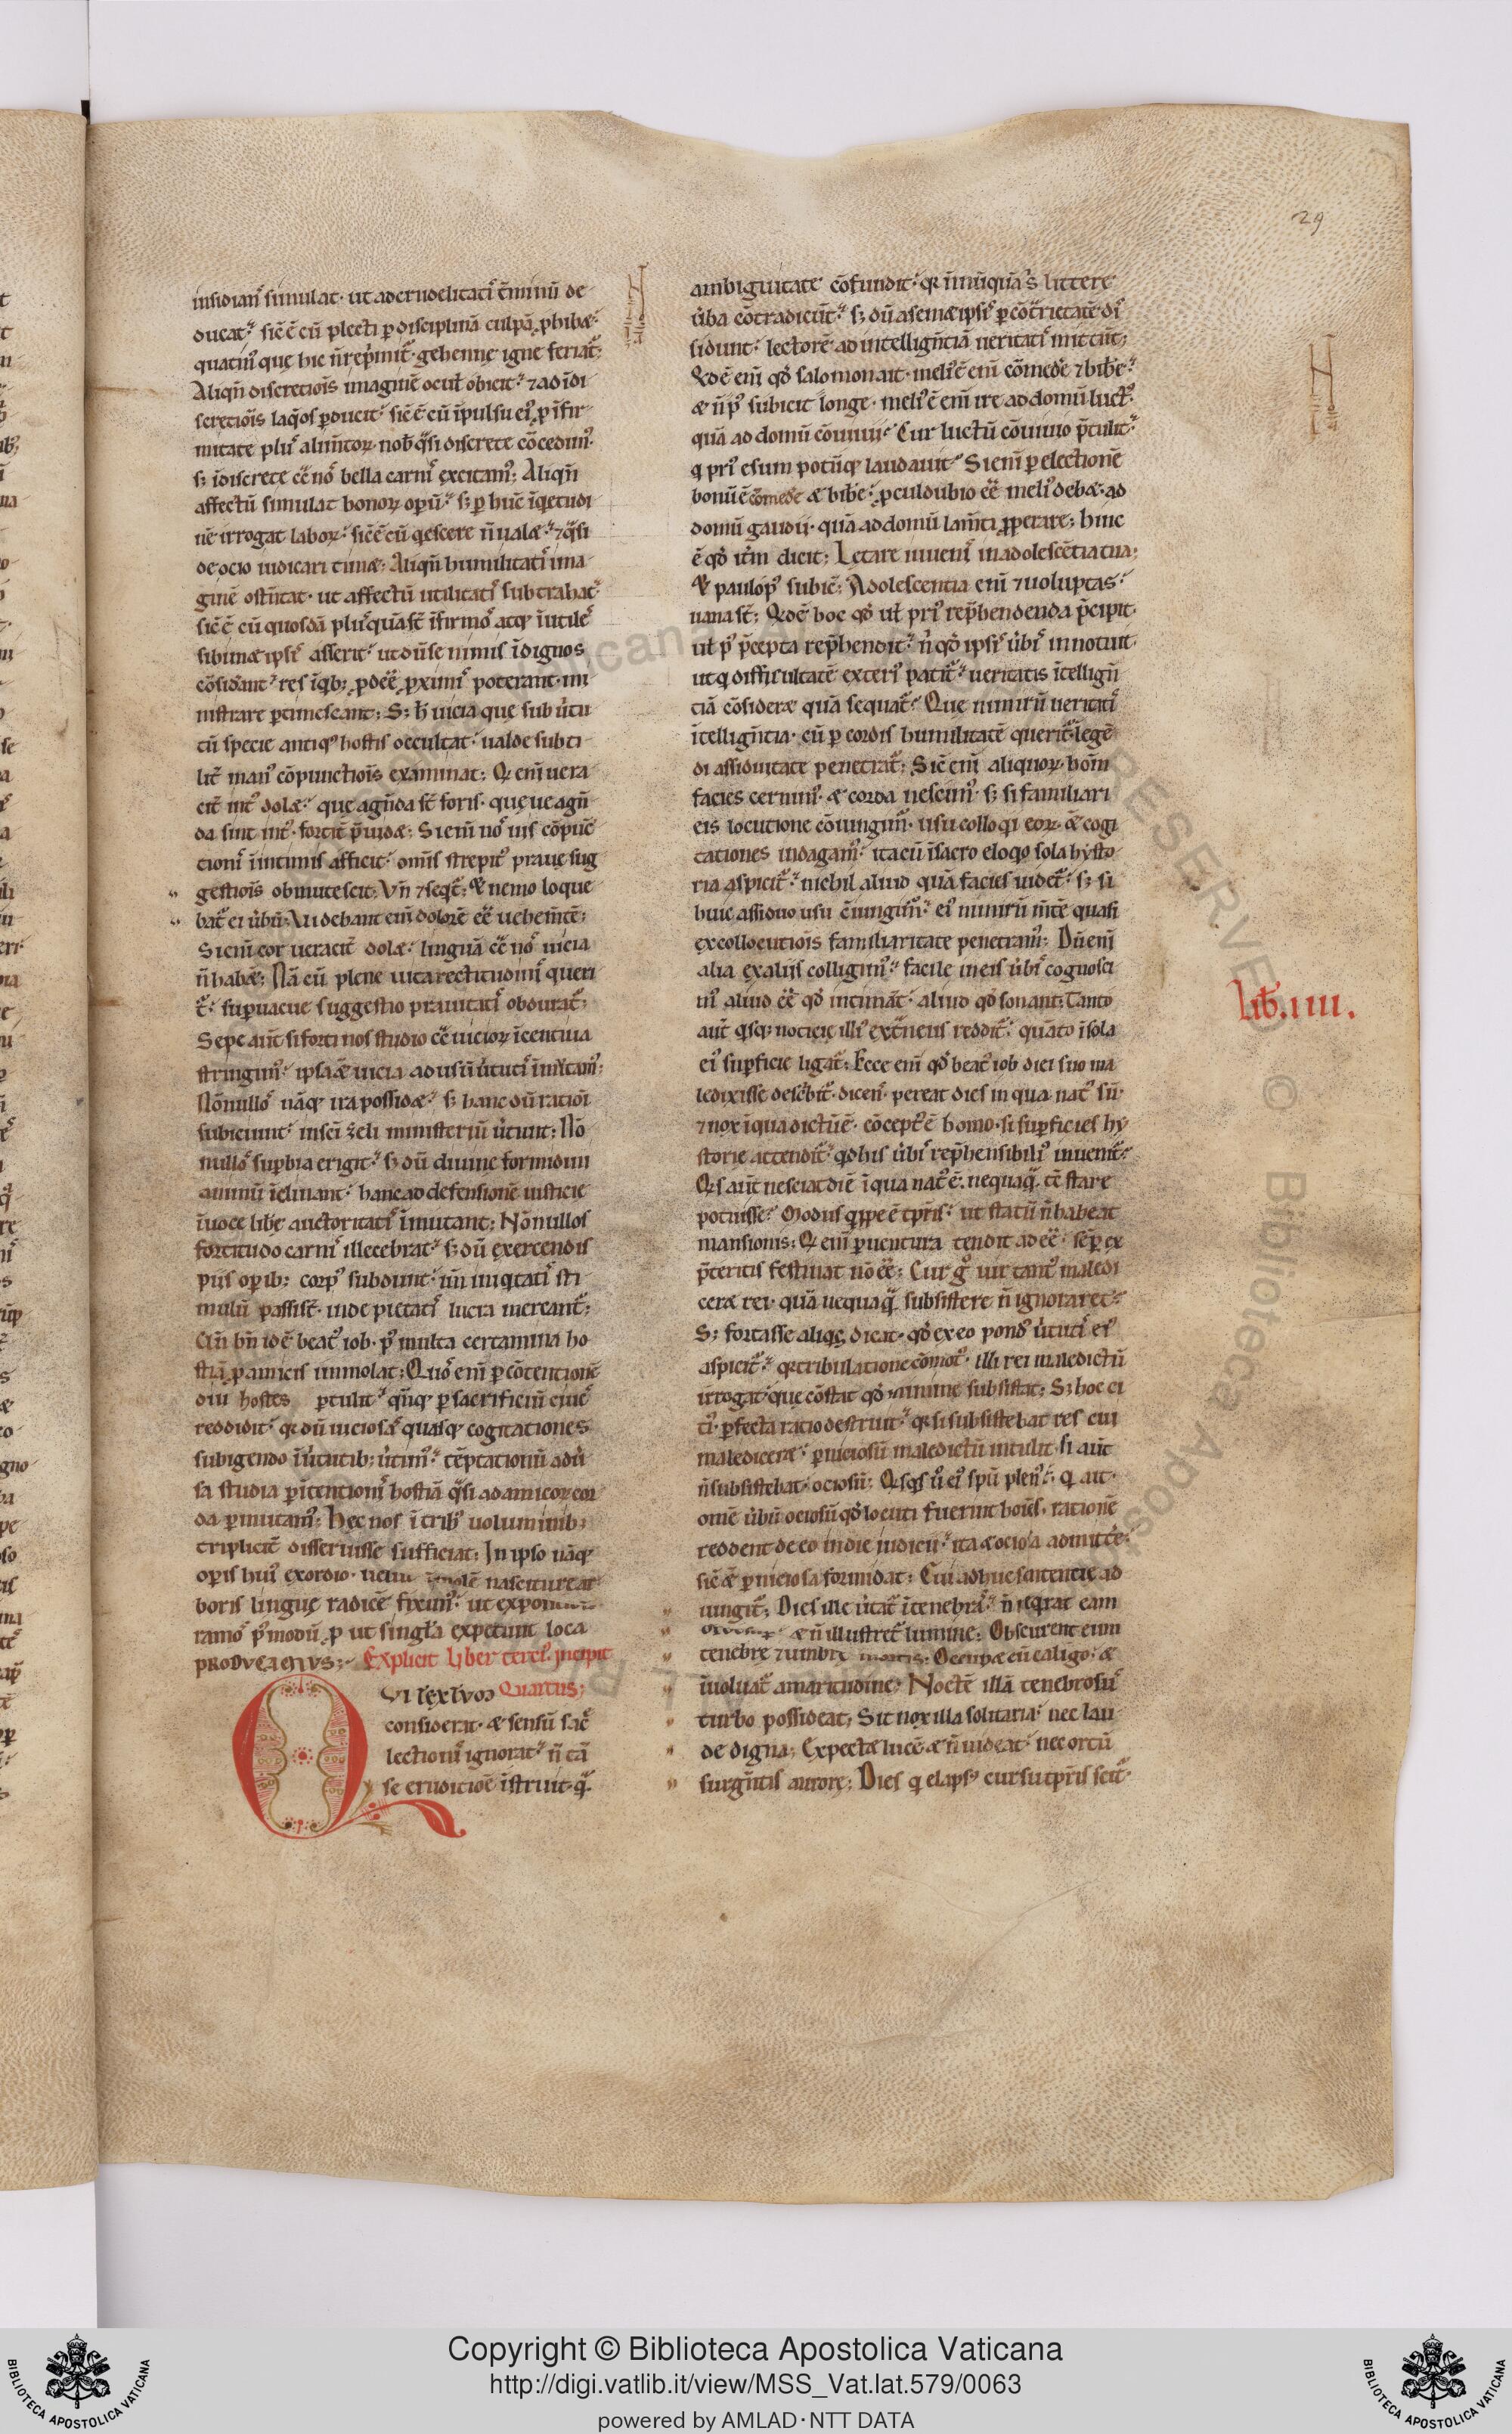 29
insidiant᷑ simulat· ut ad crudelitati᷒ t̄minū de
ducat᷑ sic̄ ē cū plecti p disciplinā culpā ꝓhibæ·
quatin᷒ que hic n̄ rep̄mit᷑· gehennę igne feriat᷑;
Aliqn̄ discretiōis imaginē ocul̄ obicit· ⁊ ad īdi
scretiōis laq̄os ꝑducit· sic̄ ē cū īpulsu ei᷒ ꝓ īfir
mitate plus alimtoꝝ nob̄ q̄si discrete cōcedim᷒·
s; īdiscrete c̄ nos bella carnis excitam᷒; Aliqn̄
affectū simulat bonoꝝ opū· s; ꝑ hūc īq̇etudi
nē irrogat laboꝝ· sic̄ ē cū q̇escere n̄ ualæ ⁊ q̄si
de ocio iudicari timæ; Aliqn̄ humilitatis ima
ginē ostn̄tat· ut affectū utilitatis subtrahat·
sic̄ ē cū quosdā plus quā st̄ īfirmos atqꝫ īutiles
sibimæ ipsis asserit· ut dū se nimis īdignos
cōsidant᷑ res īqb; ꝓdeē ꝓximis poterant mi
nistrare ptimescant; S; h̄ uicia que sub u̇tu
tū specie antiq᷒ hostis occultat· ualde subti
lit̄ man᷒ cōpunctiōis examinat; Q̇ enī uera
cit̄ int᷒ dolæ· que agn̄da st̄ foris· que ue agn̄
da sint int᷒· fortit̄ p̄uidæ; Si enī nos uis cōpūc
tionis ī intimis afficit· om̄is strepit᷒ praue sug
gestiōis obmutescit; Vn̄ ⁊ seq̇t᷑; Et nemo loque
bat᷑ ei u̇bū; Videbant enī dolorē eē uehem̄tē;
Si enī cor ueracit̄ dolæ· linguā c̄ nos uicia
n̄ habæ; Nā cū plene uita rectitudinis queri
t᷑· suꝑuacue suggestio prauitatis obdurat᷑;
Sepe aūt si forti nos studio c̄ uicioꝝ īcentiua
stringim᷒· ipsa ǣ uicia ad usū u̇tutis īmutam᷒;
Nōnullos nāqꝫ ira possidæ· s; hanc dū rationi
subiciunt· in sci zeli ministeriū u̇tunt; Nō
nullos suꝑbia erigit· s; dū diuine formidini
animū īclinant· hanc ad defensionē iusticie
ī uoce libe auctoritatis īmutant; Nōnullos
fortitudo carnis illecebrat· s; dū exercendis
piis opib; corp᷒ subdunt· un̄ iniq̇tatis sti
mulū passi st̄· inde pietatis lucra mercant᷑;
Un̄ bn̄ idē beat᷒ iob· p᷒ multa certamina ho
stiā ꝓ amicis immolat; Quos enī ꝑ cōtentionē
diu hostes ptulit· qn̄qꝫ ꝑ sacrificiū ciues
reddidit· q̇ dū uiciosas quasqꝫ cogitationes
subigendo ī u̇tutib; u̇tim᷒· tēptationū adu̇
sa studia ꝑ ītentionis hostiā q̄si ad amicoꝝ cor
da ꝑmutam᷒; Hec nos ī trib᷒ uoluminib;
triplicit̄ disseruisse sufficiat; In ipso nāqꝫ
opis hui᷒ exordio· uelut molē nasciture ar
boris linguę radicē fixim᷒· ut
ramos p᷒modū ꝓ ut singl̄a expetunt loca
PRODVCAMVS; Explicit Liber terci᷒. Incipit
Quartus;
QVI TEXTVM
considerat· æ sensū sacē
lectionis ignorat· n̄ tā
se eruditiōe īstruit· q̄
H
ambiguitate cōfundit· q̇ nnūquā s̄ littere
u̇ba cōtradicūt· s; dū a semæ ipsis ꝑ cōt̄rietatē di
sidunt· lectorē ad intellign̄tiā ueritatis mittūt;
Qdē enī qd̄ salomon ait· meli᷒ ē enī cōmede ⁊ bibe·
æ n̄ p᷒ subicit longe· meli᷒ ē enī ire ad domū luct᷒·
quā ad domū cōuiuii· Cur luctū cōuiuio p̄tulit·
q pri᷒ esum potūqꝫ laudauit· Si enī ꝑ electionē
bonū ē cōmede æ bibe· ꝓculdubio eē meli᷒ debæ· ad
domū gaudii· quā ad domū lam̄ti ꝓperare; Hinc
ē qd̄ it̄m dicit; Letare iuuenis in adolescētia tua;
Et paulo p᷒ subic̄; Adolescentia enī ⁊ uoluptas·
uana st̄; Qdē hoc qd̄ ul̄ pri᷒ rep̄hendenda p̄cipit·
ul̄ p᷒ p̄cepta rep̄hendit· n̄ qd̄ ipsis u̇bis innotuit·
ut q difficultatē exteri᷒ patit᷑· ueritatis ītellign̄
tiā cōsideræ quā sequat᷑· Que nimirū ueritatis
ītellign̄tia· cū ꝑ cordis humilitatē querit᷑ legē
di assiduitate penetrat᷑; Sic̄ enī aliquoꝝ hom̄
facies cernim᷒· æ corda nescim᷒· s; si familiari
eis locutione cōiungim᷑· usu colloq̇i eoꝝ æ cogi
tationes indagam᷒· ita cū ī sacro eloq̇o sola hysto
ria aspicit᷑· nichil aliud quā facies uidet᷑· s; si
huic assiduo usu c̄iungim᷑· ei᷒ nimirū m̄tē quasi
ex collocutiōis familiaritate penetram᷒; Dū enī
alia ex aliis colligim᷒· facile in eis u̇bis cognosci
m᷒ aliud eē qd̄ intimāt· aliud qd̄ sonant; Tanto
aūt q̇sqꝫ noticię illi᷒ ext̄neus reddit᷑· quāto ī sola
ei᷒ suꝑficie ligat᷑; Ecce enī qd̄ beat᷒ iob diei suo ma
ledixisse desc̄bit᷑· dicens· pereat dies in qua nat᷒ sū·
⁊ nox ī qua dictū ē· cōcept᷒ ē homo· si suꝑficies hy
storie attendit᷑· qd̄ his u̇bis rep̄hensibili᷒ inuenit᷑·
Q̇s aūt nesciat diē ī qua nat᷒ ē· nequaq̄ tc̄ stare
potuisse· Modus q̇ppe ē tp̄ris· ut statū n̄ habeat
mansionis; Q̇ enī ꝑ uentura tendit ad eē· sēp ex
p̄teritis festinat nō eē; Cur g᷒ uir tant᷒ maledi
ceræ rei· quā nequaq̄ subsistere n̄ ignoraret·
S; fortasse aliq̇s dicat· qd̄ ex eo pond᷒ u̇tutis ei᷒
aspicit᷑· q̇ tribulatione cōmot᷒· illi rei maledictū
irrogat· que cōstat qd̄ minime subsistat; S; hoc ci
ti᷒ ꝑfecta ratio destruit· q̇ si subsistebat res cui
malediceræ· ꝑniciosū maledictū intulit· si aūt
n̄ subsistebat· ociosū; Q̇sq̇s u̇ ei᷒ spū plen᷒ ē· q ait·
omē u̇bū ociosū qd̄ locuti fuerint hoīes· rationē
reddent de eo in die iudicii· ita æ ociosa admitte·
sic̄ ǣ ꝑniciosa formidat; Cui adhuc sententie ad
iungit᷑; Dies ille u̇tat᷑ ī tenebras· n̄ req̇rat eam
æ n̄ illustret᷑ lumine; Obscurent eum
tenebre ⁊ umbra mortis; Occupæ eū caligo· æ
īuoluat᷑ amaritudine; Noctē illā tenebrosus
turbo possideat; Sit nox illa solitaria· nec lau
de digna; Expectæ lucē æ n̄ uideat· nec ortū
surgn̄tis aurorę; Dies q elaps᷒ cursu tp̄ris scit᷑·
H
Lib̄. IIII.
Copyright © Biblioteca Apostolica Vaticana
http://digi.vatlib.it/view/MSS_Vat.lat.579/0063
powered by AMLAD·NTT DATA
BIBLIOTECA APOSTOLICA VATICANA
BIBLIOTECA APOSTOLICA VATICANA